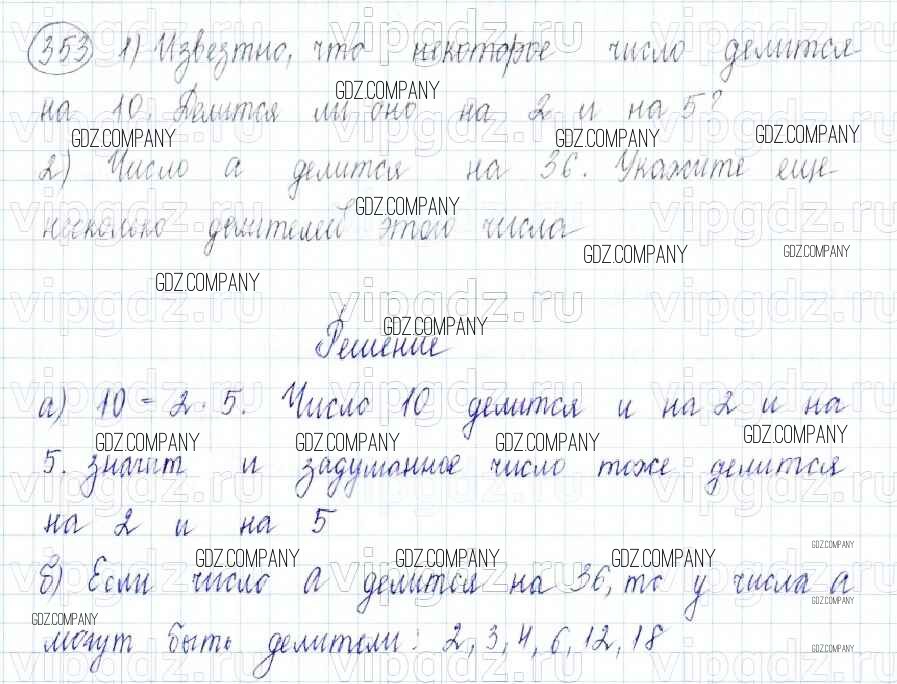 353 1) Извезтно, что некоторое число делится
на 10. Делится ли оно на 2 и на 5?
2) Число а делится на 36. Укажите еще
несколько делителей этого числа
Решение
а) 10 = 2 · 5. Число 10 делится и на 2 и на
5. значит и задуманное число тоже делится
на 2 и на 5
б) Если число а делится на 36, то у числа а
могут быть делители: 2, 3, 4, 6, 12, 18
GDZ.COMPANY
vipgdz.ru